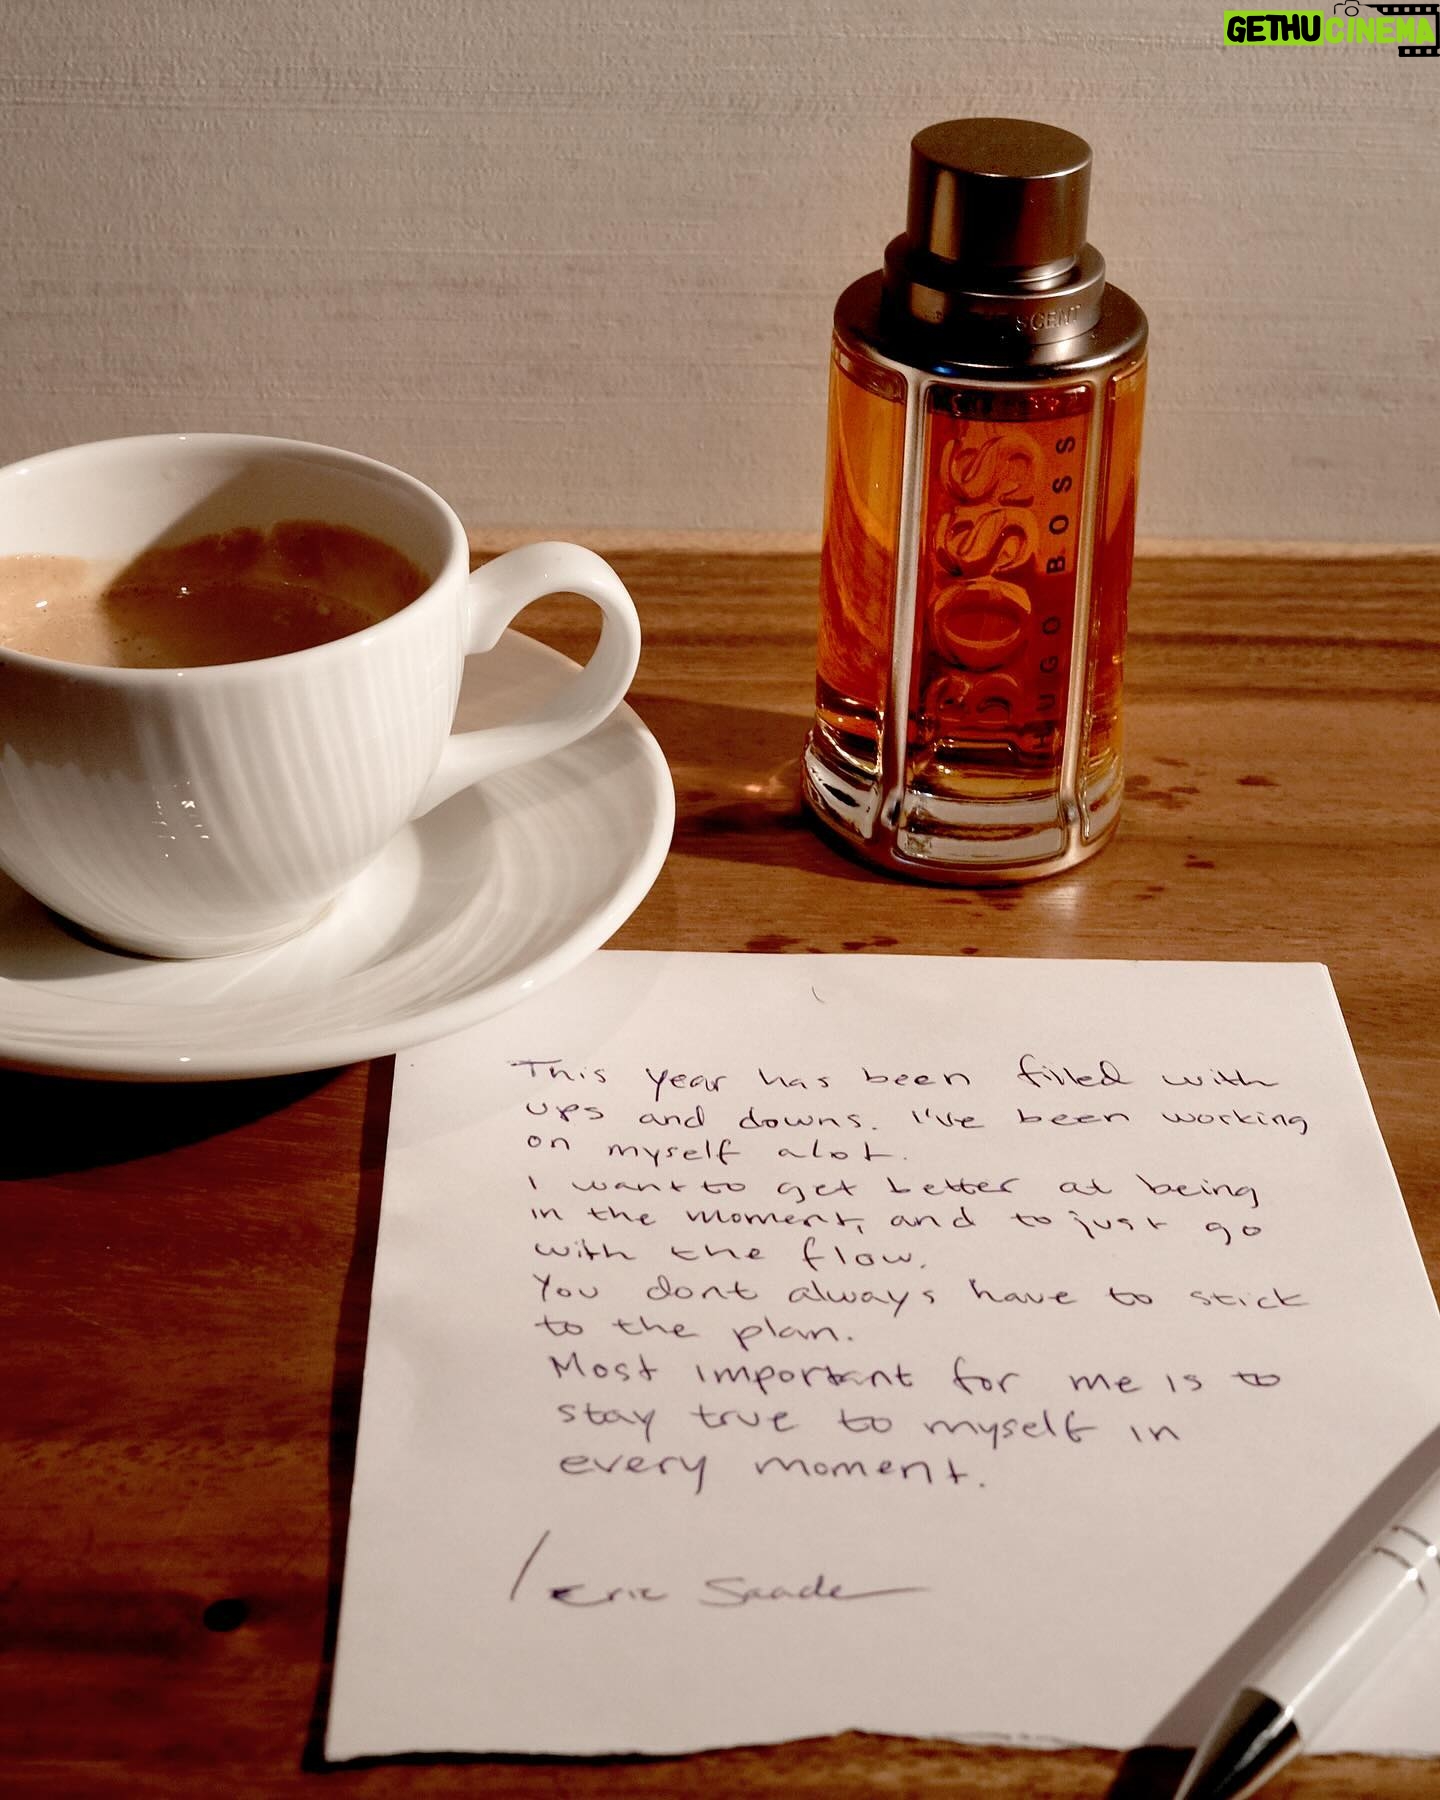 GETHUCINEMA
THE SCENT
BOSS
HUGO BOSS
This year has been filled with
ups and downs. I've been working
on myself alot.
I want to get better at being
in the moment, and to just go
with the flow.
You dont always have to stick
to the plan.
Most important for me is to
stay true to myself in
every moment.
/Eric Saade